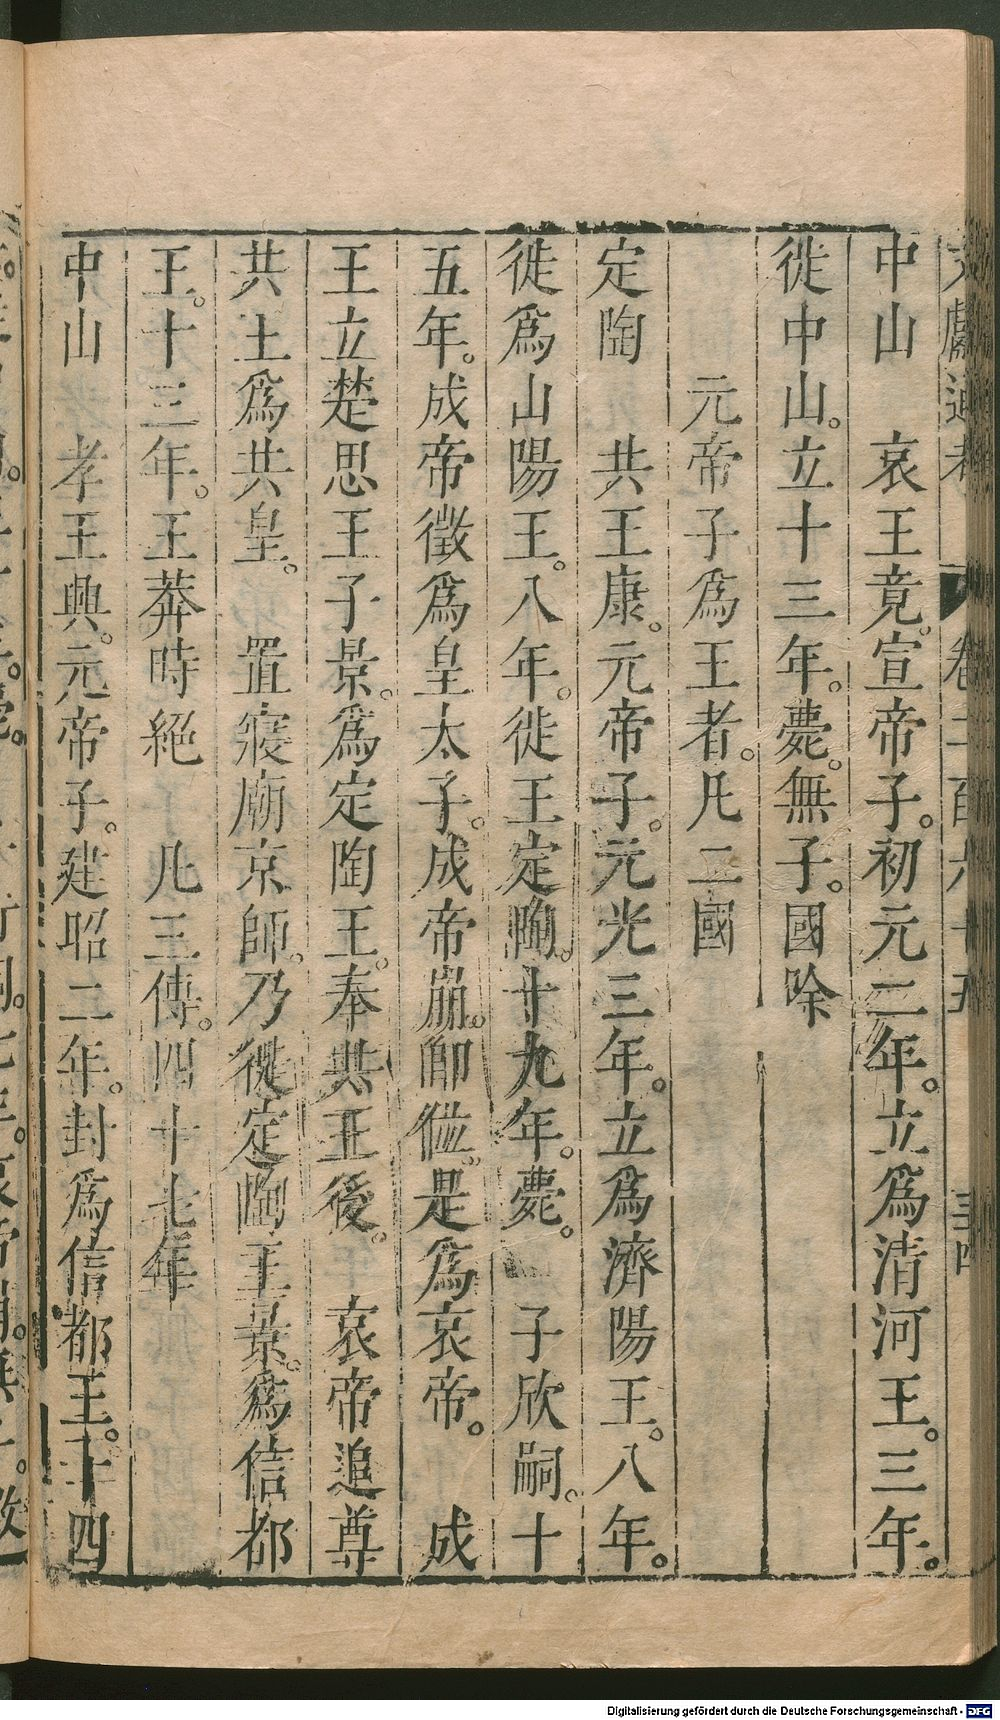 中山　哀王竟。宣帝子。初元二年。立爲清河王。三年。
徙中山。立十三年。薨。無子。國除
元帝子爲王者。凡二國
定陶　共王康。元帝子。元光三年。立爲濟陽王。八年。
徙爲山陽王。八年。徙王定陶。十九年。薨。　子欣嗣。十
五年。成帝徵爲皇太子。成帝崩。卽位。是爲哀帝。　成
王立楚思王子景。爲定陶王。奉共王後。　哀帝追尊
共王爲共皇。　置寢廟京師。乃徙定陶王景。爲信都
王。十三年。王莽時絕　凡三傳。四十七年
中山　孝王興。元帝子。建昭二年。封爲信都王。十四
Digitalisierung gefördert durch die Deutsche Forschungsgemeinschaft - DFG